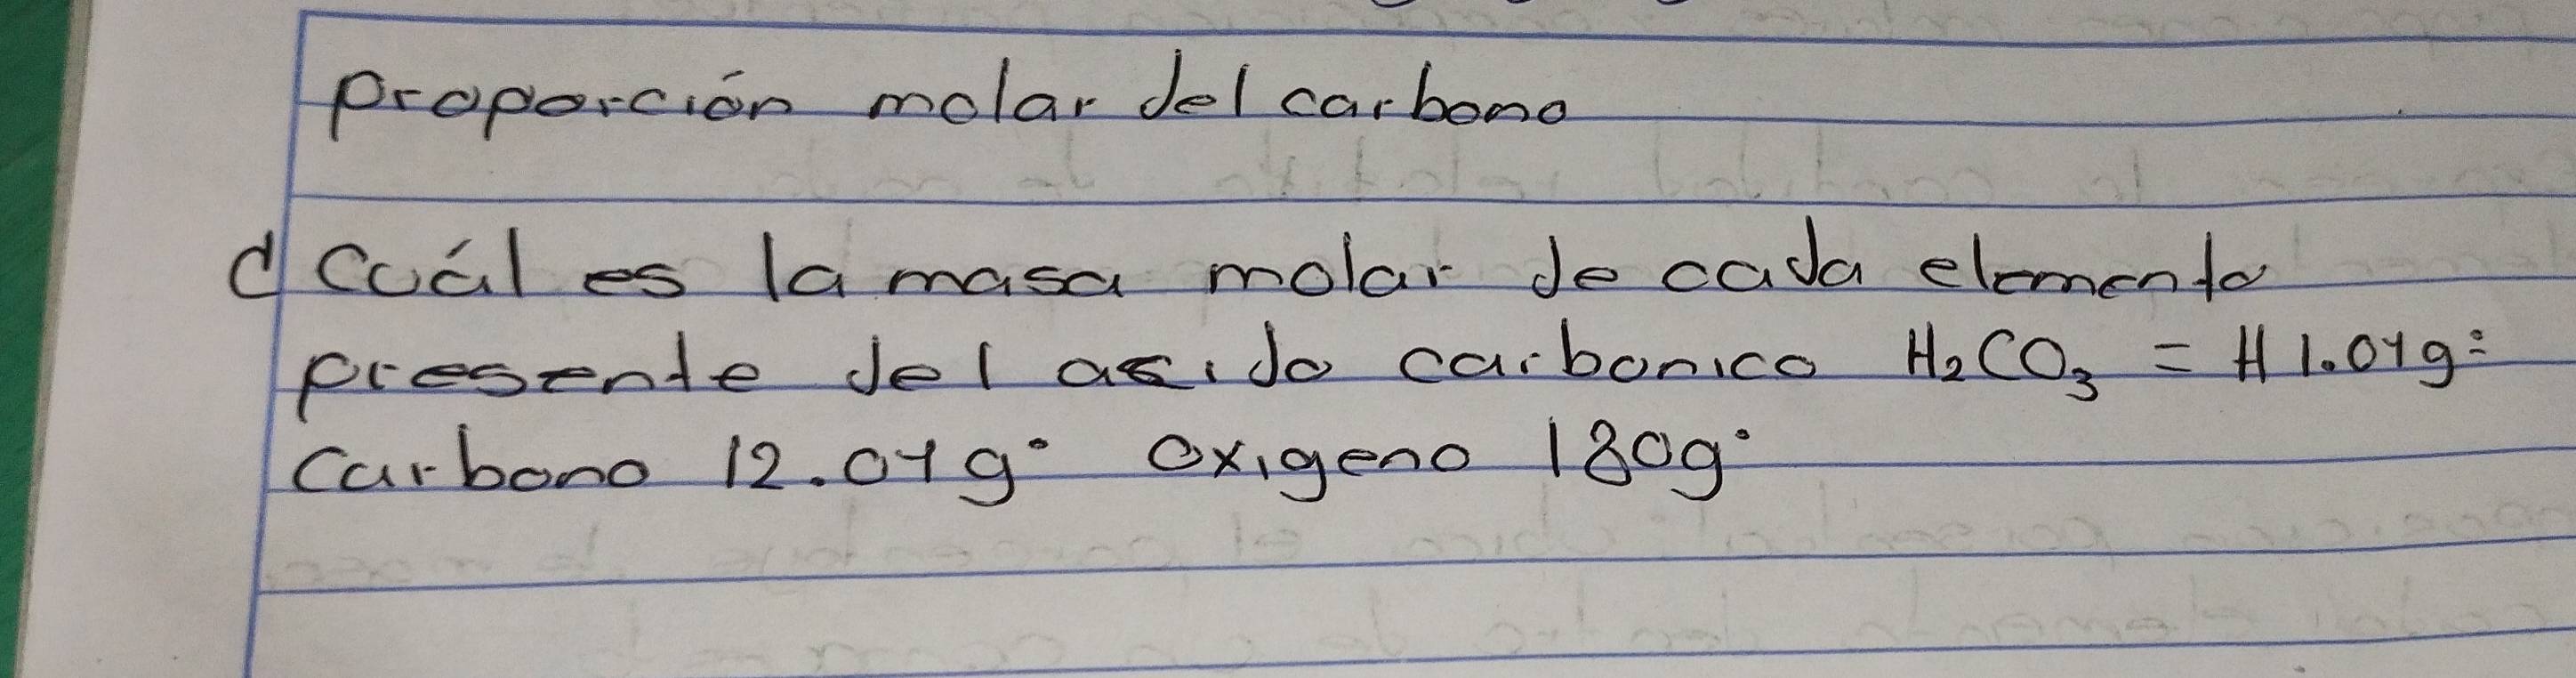 proporción molar del carbono
d Cuál es la masa molar de cada elemento
presente del acido carbonico H₂CO₃ = H 1.01g:
Carbono 12.01g. oxigeno 180g.